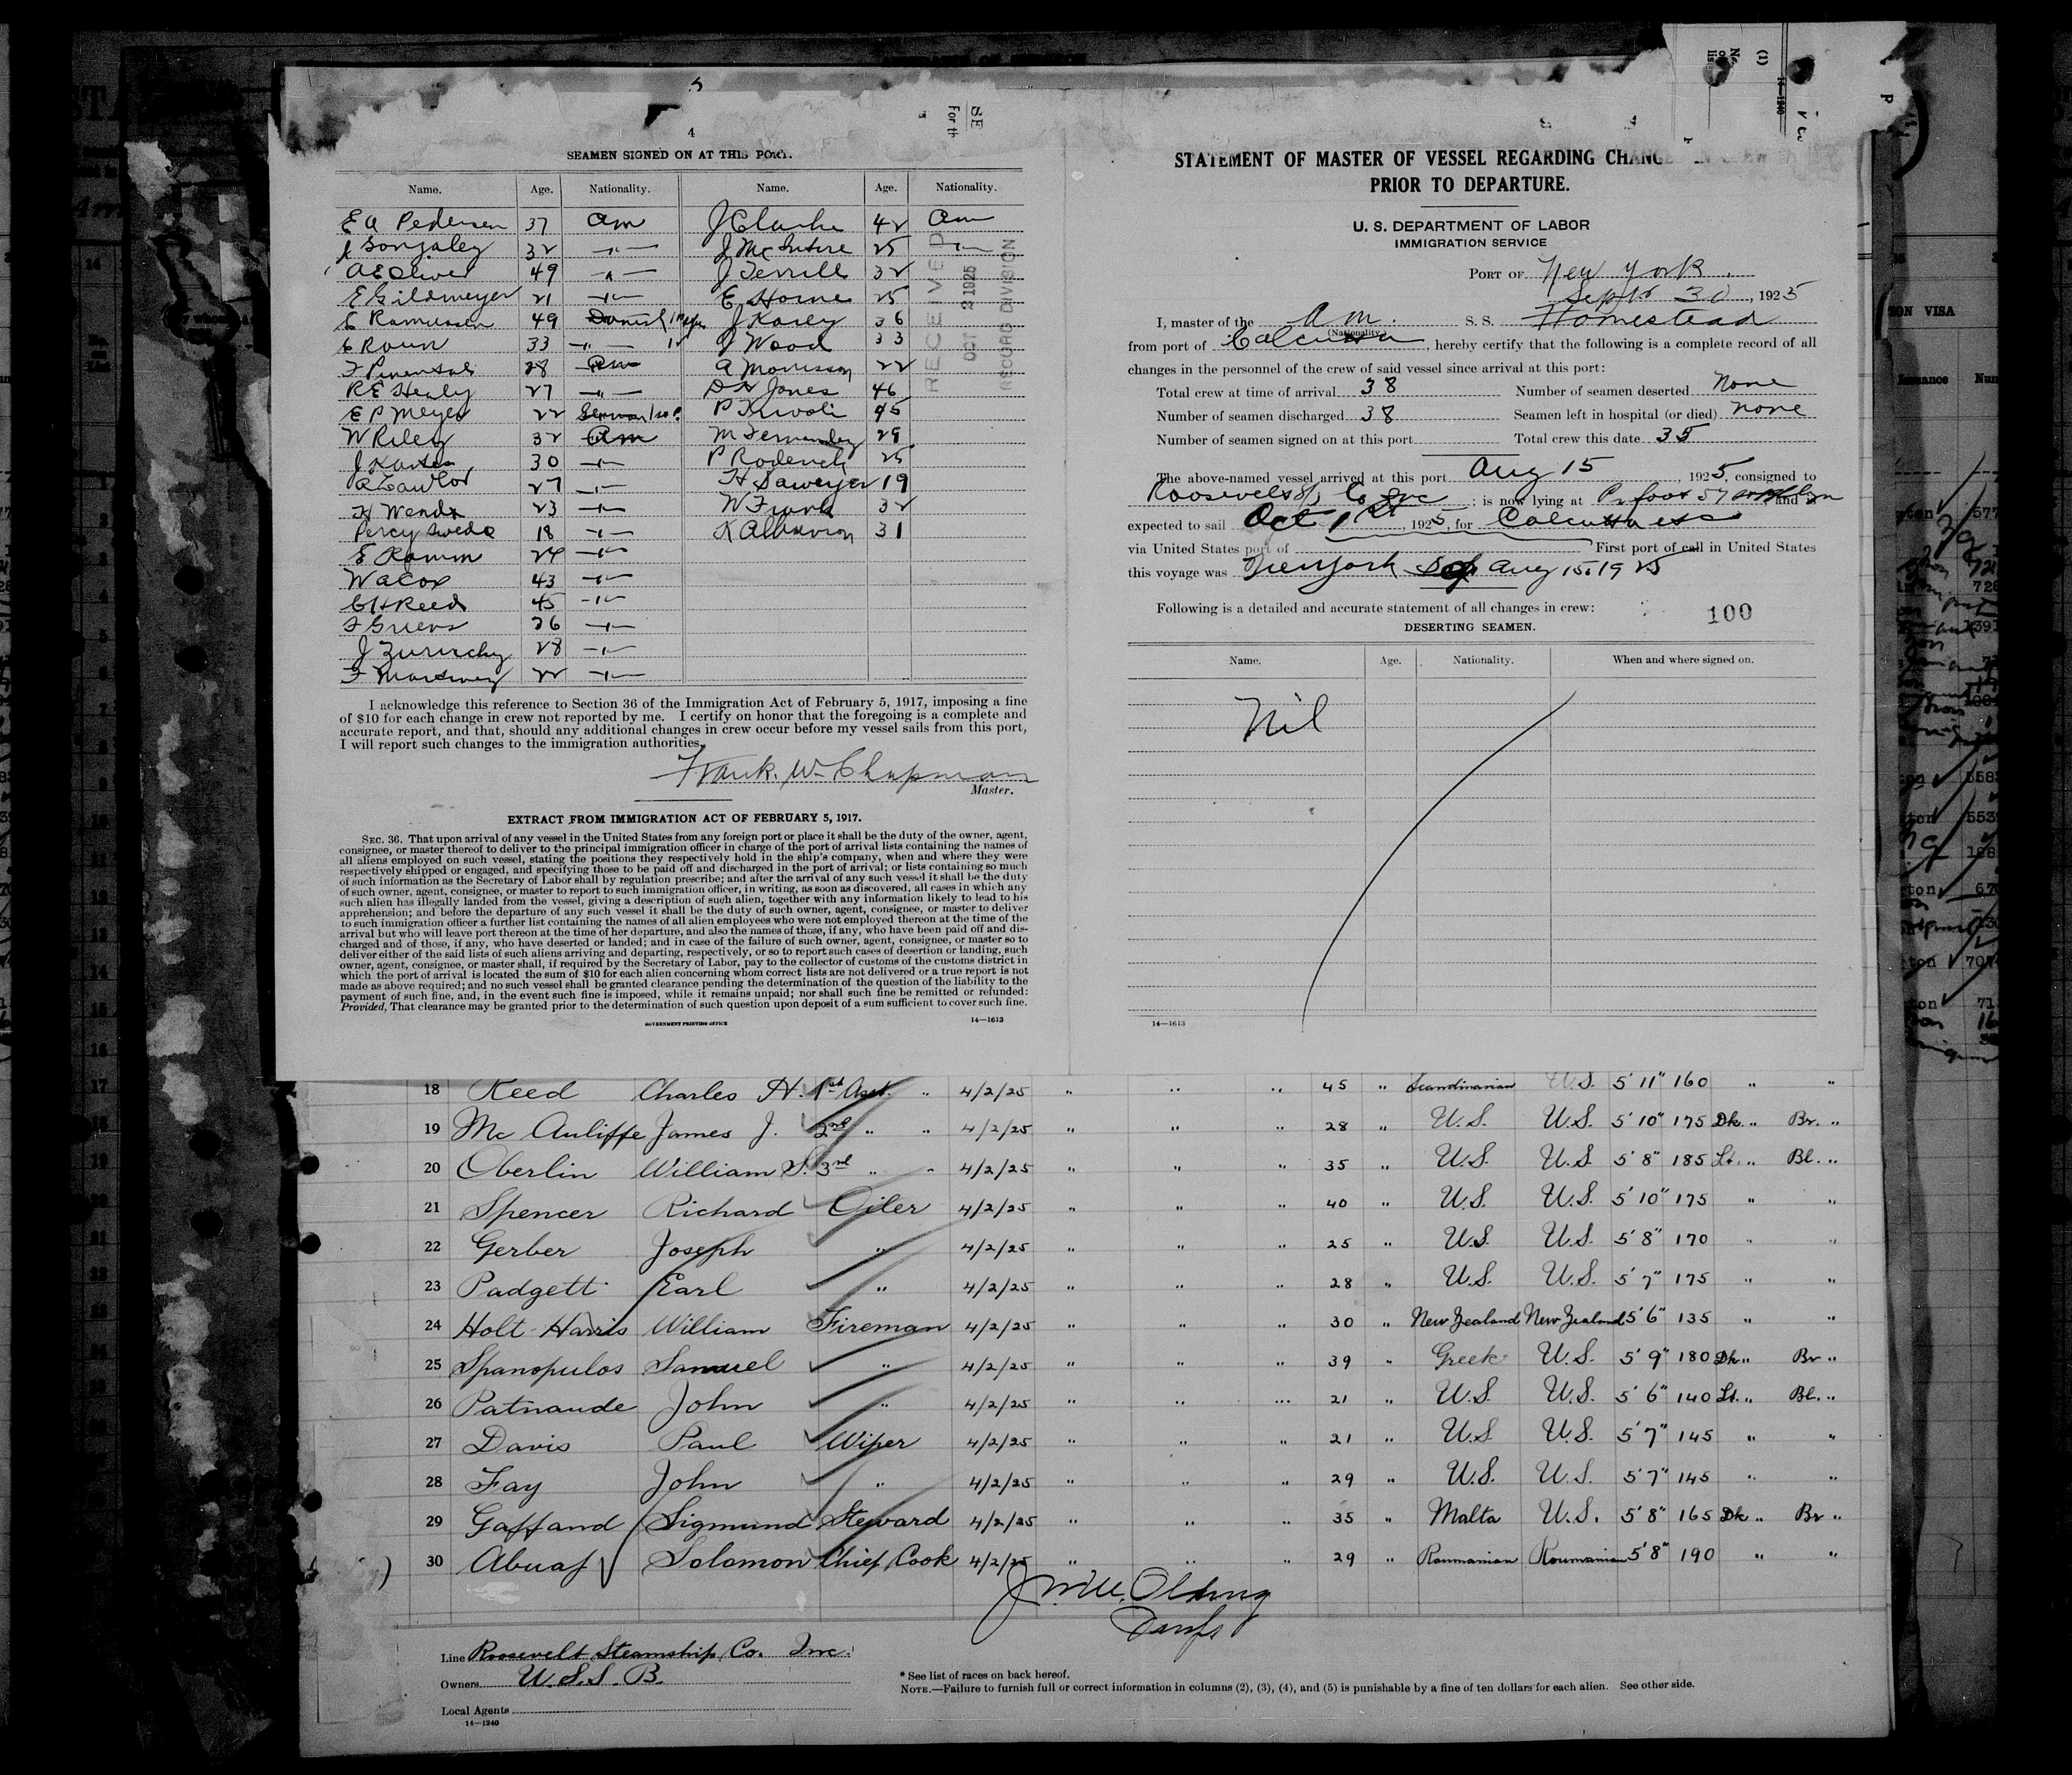 4
SEAMEN SIGNED ON AT THIS PORT.
Name. Age. Nationality. Name. Age. Nationality.
E A Pedersen 37 Am J Clarke 42 Am
J Gonzalez 32 —"— J McIntire 25 —"—
A E Oliver 49 —"— J Terrill 32
E Gildmeyer 21 —"— E Horne 25
E Ramussen 49 J Kasey 36
33 —"— J Wood 33
28 Am A Morrison 22
R E Healy 27 —"— D H Jones 46
E P Meyer 22 German P Kuvoli 45
W Riley 32 Am M Fernandez 29
J 30 —"— P Roderick 25
R Lawlor 27 —"— H Sawyer 19
H Wendt 23 —"— W Frank 32
Percy Swede 18 —"— K Allman 31
E Ramm 24 —"—
W A Cox 43 —"—
C H Reed 45 —"—
F Griens 26 —"—
J 28 —"—
F 22 —"—
RECEIVED
OCT 2 1925
RECORD DIVISION
I acknowledge this reference to Section 36 of the Immigration Act of February 5, 1917, imposing a fine
of $10 for each change in crew not reported by me. I certify on honor that the foregoing is a complete and
accurate report, and that, should any additional changes in crew occur before my vessel sails from this port,
I will report such changes to the immigration authorities.
Frank. W. Chapman
Master.
EXTRACT FROM IMMIGRATION ACT OF FEBRUARY 5, 1917.
SEC. 36. That upon arrival of any vessel in the United States from any foreign port or place it shall be the duty of the owner, agent,
consignee, or master thereof to deliver to the principal immigration officer in charge of the port of arrival lists containing the names of
all aliens employed on such vessel, stating the positions they respectively hold in the ship's company, when and where they were
respectively shipped or engaged, and specifying those to be paid off and discharged in the port of arrival; or lists containing so much
of such information as the Secretary of Labor shall by regulation prescribe; and after the arrival of any such vessel it shall be the duty
of such owner, agent, consignee, or master to report to such immigration officer, in writing, as soon as discovered, all cases in which any
such alien has illegally landed from the vessel, giving a description of such alien, together with any information likely to lead to his
apprehension; and before the departure of any such vessel it shall be the duty of such owner, agent, consignee, or master to deliver
to such immigration officer a further list containing the names of all alien employees who were not employed thereon at the time of the
arrival but who will leave port thereon at the time of her departure, and also the names of those, if any, who have been paid off and dis-
charged and of those, if any, who have deserted or landed; and in case of the failure of such owner, agent, consignee, or master so to
deliver either of the said lists of such aliens arriving and departing, respectively, or so to report such cases of desertion or landing, such
owner, agent, consignee, or master shall, if required by the Secretary of Labor, pay to the collector of customs of the customs district in
which the port of arrival is located the sum of $10 for each alien concerning whom correct lists are not delivered or a true report is not
made as above required; and no such vessel shall be granted clearance pending the determination of the question of the liability to the
payment of such fine, and, in the event such fine is imposed, while it remains unpaid; nor shall such fine be remitted or refunded:
Provided, That clearance may be granted prior to the determination of such question upon deposit of a sum sufficient to cover such fine.
GOVERNMENT PRINTING OFFICE 14—1613
STATEMENT OF MASTER OF VESSEL REGARDING
PRIOR TO DEPARTURE.
U. S. DEPARTMENT OF LABOR
IMMIGRATION SERVICE
PORT OF New York.
Septbr 30, 1925
I, master of the Am. S. S. Homestead
(Nationality.)
from port of Calcutta, hereby certify that the following is a complete record of all
changes in the personnel of the crew of said vessel since arrival at this port:
Total crew at time of arrival 38 Number of seamen deserted None
Number of seamen discharged 38 Seamen left in hospital (or died) none
Number of seamen signed on at this port Total crew this date 35
The above-named vessel arrived at this port Aug 15, 1925, consigned to
Roosevelt S/S Co Inc; is now lying at foot 57, and is
expected to sail Oct 1st, 1925, for Calcutta etc
via United States port of First port of call in United States
this voyage was New York Aug 15. 1925
Following is a detailed and accurate statement of all changes in crew: 100
DESERTING SEAMEN.
Name. Age. Nationality. When and where signed on.
Nil
14—1613
18 Reed Charles H. 1st Asst. " 4/2/25 " " " 45 " Scandinavian U.S. 5'11" 160 " "
19 Mc Auliffe James J. 2nd " " 4/2/25 " " " 28 " U.S. U.S. 5'10" 175 Dk. " Br. "
20 Oberlin William S. 3rd " " 4/2/25 " " " 35 " U.S. U.S. 5'8" 185 Lt. " Bl. "
21 Spencer Richard Oiler 4/2/25 " " " 40 " U.S. U.S. 5'10" 175 " "
22 Gerber Joseph " 4/2/25 " " " 25 " U.S. U.S. 5'8" 170 " "
23 Padgett Earl " 4/2/25 " " " 28 " U.S. U.S. 5'7" 175 " "
24 Holt-Harris William Fireman 4/2/25 " " " 30 " New Zealand New Zealand 5'6" 135 " "
25 Spanopulos Samuel " 4/2/25 " " " 39 " Greek U.S. 5'9" 180 Dk " Br "
26 Patnaude John " 4/2/25 " " " 21 " U.S. U.S. 5'6" 140 Lt. " Bl. "
27 Davis Paul Wiper 4/2/25 " " " 21 " U.S U.S. 5'7" 145 " "
28 Fay John " 4/2/25 " " " 29 " U.S. U.S. 5'7" 145 " "
29 Gaffand Sigmund Steward 4/2/25 " " " 35 " Malta U.S. 5'8" 165 Dk " Br "
30 Abuaf Solomon Chief Cook 4/2/25 " " " 29 " Roumanian Roumanian 5'8" 190 " "
Line Roosevelt Steamship Co. Inc.
Owners U.S.S.B.
Local Agents
14—1240
* See list of races on back hereof.
NOTE.—Failure to furnish full or correct information in columns (2), (3), (4), and (5) is punishable by a fine of ten dollars for each alien. See other side.